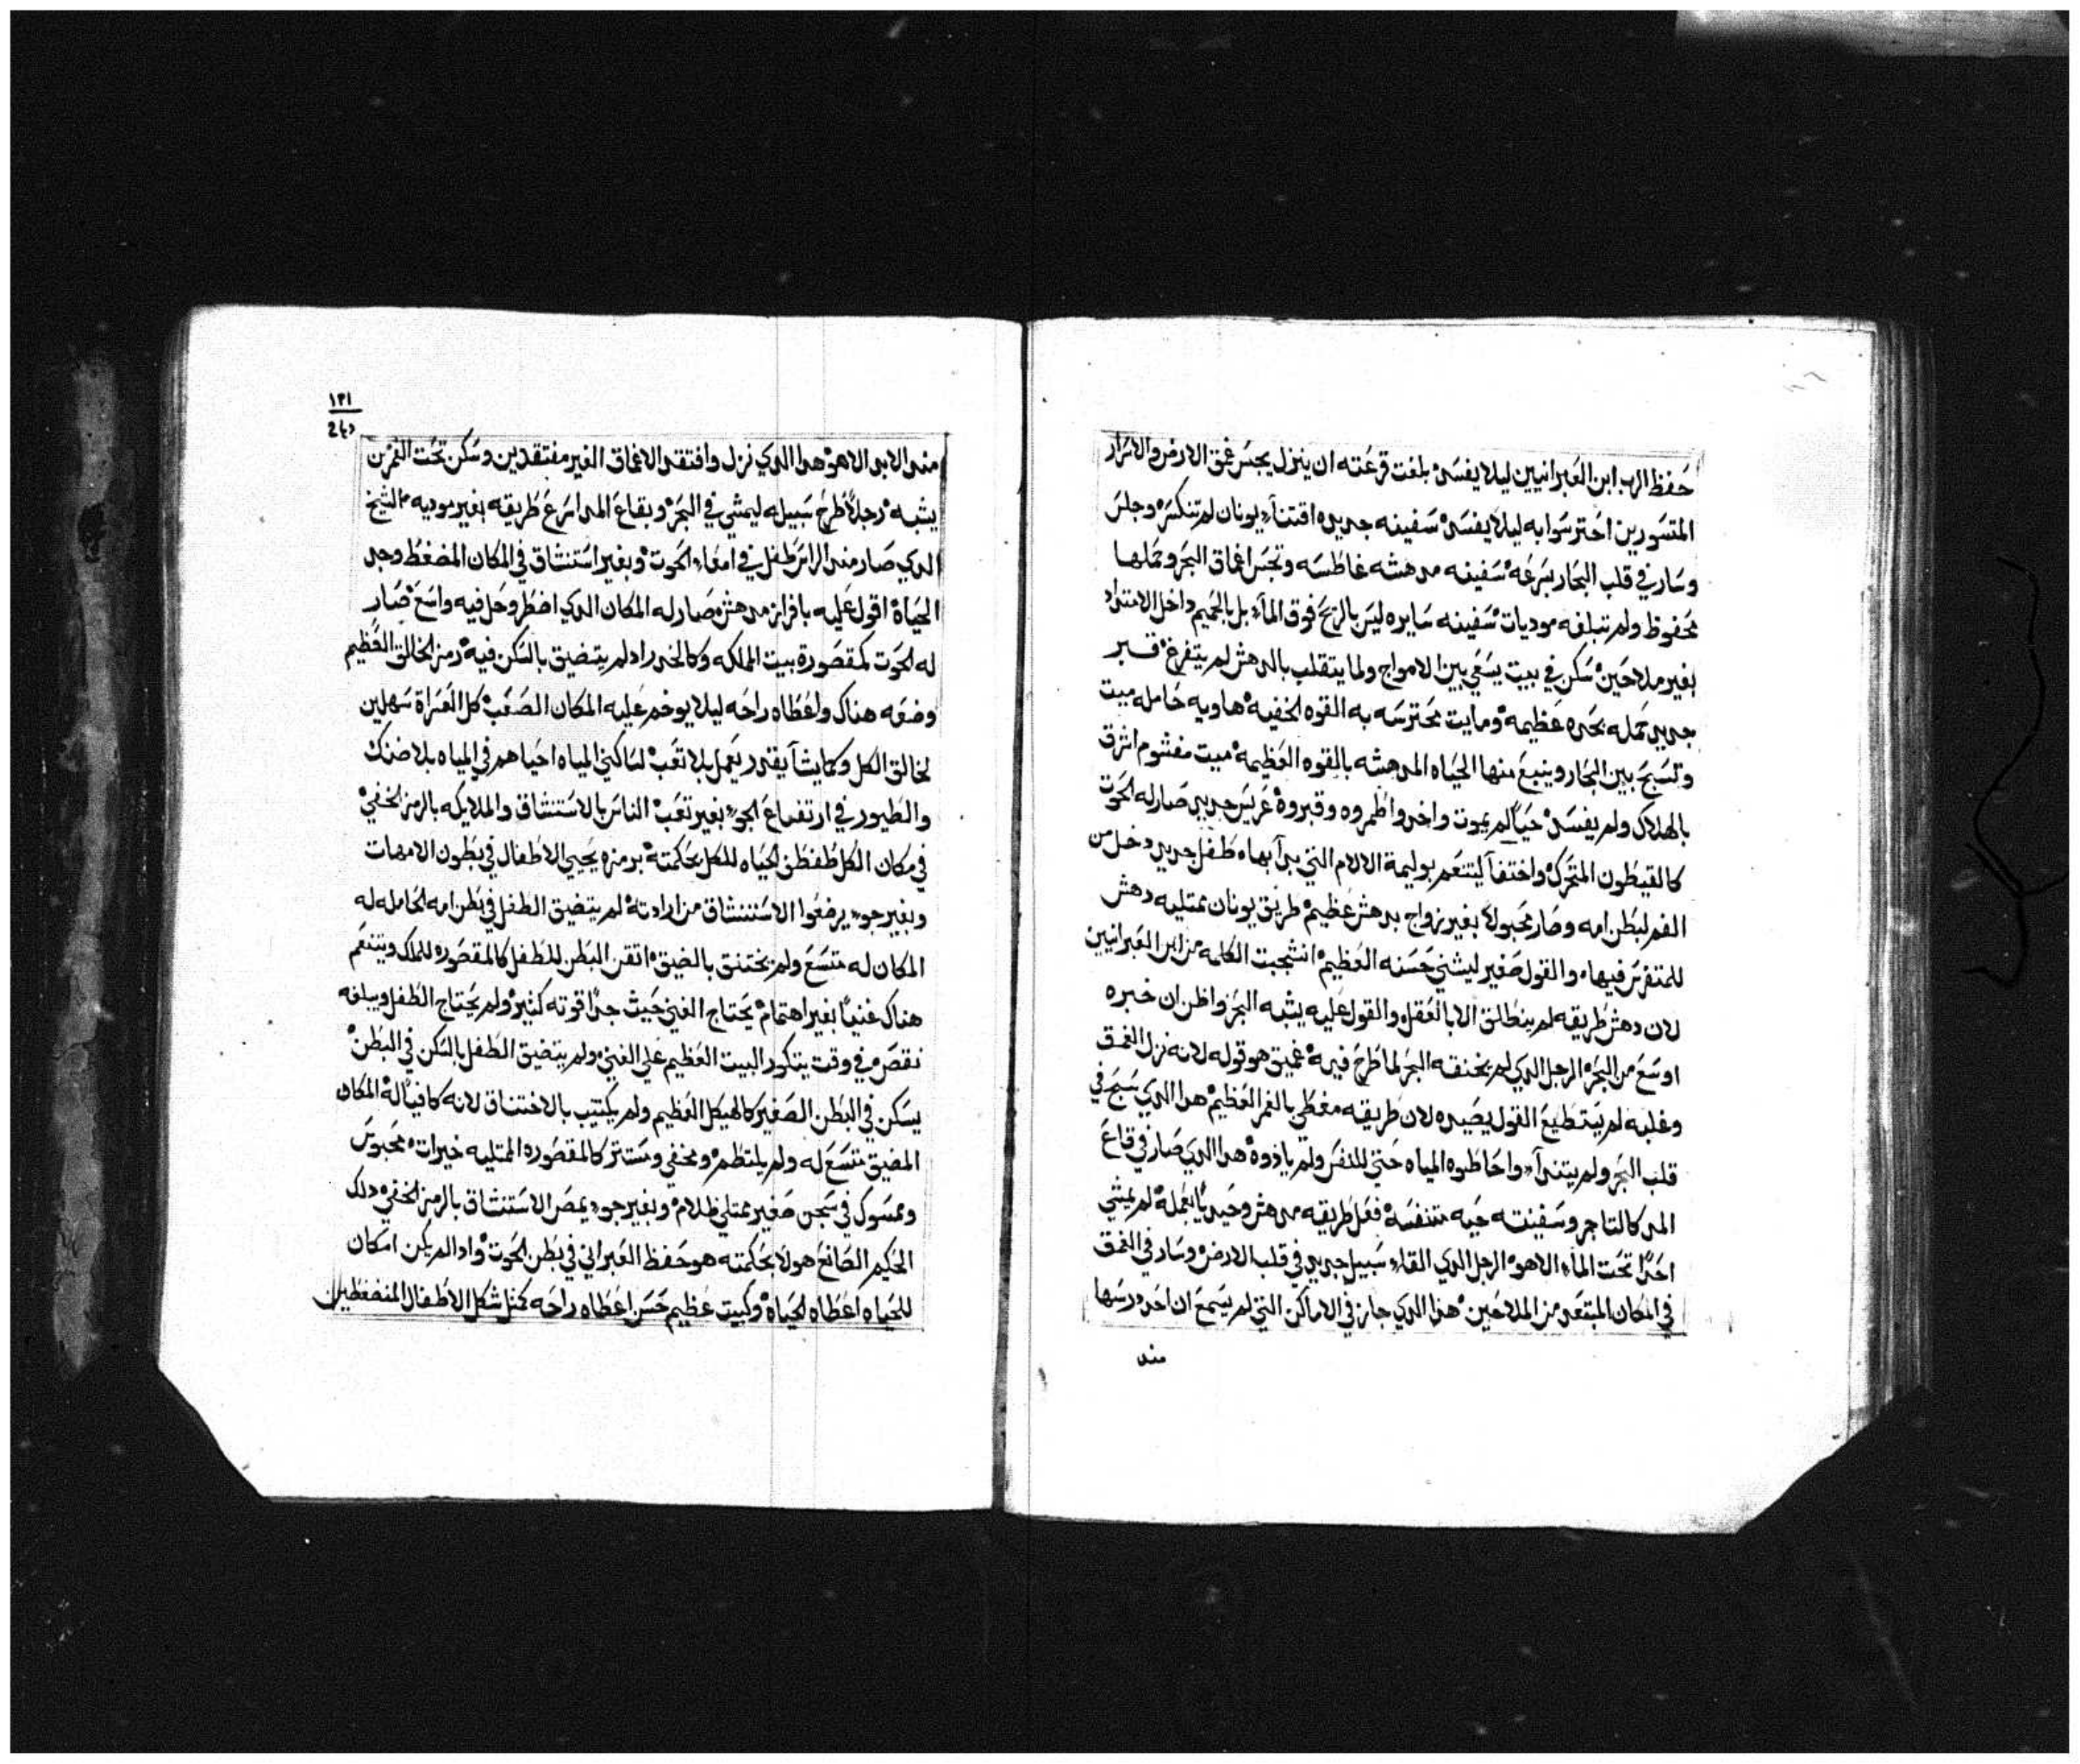 حفظ الرب ابن العبرانيين ليلا يفسد بلغت قرعته ان ينزل يجس عمق الارض والاسرار
المتسورين احترسوا به ليلا يفسد سفينه جديده اقتناء يونان لم تنكسر وجلس
وسار في قلب البحار بسرعه سفينه مدهشه غاطسه وتجس اعماق البحر وحملها
محفوظ ولم تبلغه موديات سفينه سايره ليس بالريح فوق الماء بل بالجميم داخل الامتداد
بغير ملاحين سكن في بيت يسعي بين الامواج ولما يتقلب بالدهش لم يتفرغ قبر
جديد حمله بحده عظيمه ومايت محترسه به القوه الخفيه هاويه حامله ميت
وتسبح بين البحار وينبع منها الحياه المدهشه بالقوه العظيمه ميت مغشوم اشرق
بالهلاك ولم يفسد حيا لم يموت واخدوا طمروه وقبروه عريس جديد صار له الحوت
كالقيطون المتحرك واختفا ليتنعم بوليمة الالام التي بدا بها طفل جديد دخل من
الفم لبطن امه وصار محبولا بغير زواج بدهش عظيم طريق يونان ممتليه دهش
للمتفرس فيها والقول صغير ليشني حسنه العظيم انشجبت الكلمه من ابن العبرانيين
لان دهش طريقه لم ينطلق الا بالعقل والقول عليه يشبه البحر واظن ان خبره
اوسع من البحر الرجل الدي لم يخنقه البحر لما طرح فيه عميق هو قوله لانه نزل العمق
وغلبه لم يستطيع القول يصيده لان طريقه مغطي بالغمر العظيم هدا الدي سبح في
قلب البحر ولم يتندا واحاطوه المياه حتي للنفس ولم ياذوه هدا الدي صار في قاع
المد كالتاجر وسفينته حيه متنفسه فعل طريقه مدهش وحيديا بعمله لم يمشي
احدا تحت الماء الا هو الرجل الدي القاء سبيل جديد في قلب الارض وسار في العمق
في المكان المبتعد من الملاحين هدا الدي جاز في الاماكن التي لم يسمع ان احد درسها
مند
١٣١
مند الابد الا هو هدا الدي نزل وافتقد الاعماق الغير مفتقدين وسكن تحت الغمر من
يشبه رجلا طرح سبيله ليمشي في البحر وبقاع المد اسرع طريقه بغير موديه الشيخ
الدي صار مند الراس طفل في امعاء الحوت وبغير استنشاق في المكان المضغط وجد
الحياة اقول عليه بافراز مدهش صار له المكان الدي اضطر وحل فيه واسع صار
له الحوت كمقصورة بيت المملكه وكالخدر اد لم يتضيق بالسكن فيه رمز الخالق العظيم
وضعه هناك واعطاه راحه ليلا يوخم عليه المكان الصعب كل العسراة سهلين
لخالق الكل وكما يشا يقدر يعمل بلا تعب لساكني المياه احياهم في المياه بلا ضنك
والطيور في ارتفاع الجو بغير تعب الناس بالاستنشاق والملايكه بالرمز الخفي
في مكان الكل طفطف الحياه للكل بحكمته برمزه يحيي الاطفال في بطون الامهات
وبغير جو يرضعوا الاستنشاق من ارادته لم يتضيق الطفل في بطن امه الحامله له
المكان له متسع ولم يختنق بالضيق اتقن البطن للطفل كالمقصوره للملك ويتنعم
هناك غنيا بغير اهتمام يحتاج الغني حيث جدا قوته كثير ولم يحتاج الطفل ويبلغه
نقص في وقت يتكور البيت العظيم علي الغني ولم يتضيق الطفل بالسكن في البطن
يسكن في البطن الصغير كالهيكل العظيم ولم يكتيب بالاختناق لانه كافيا له المكان
المضيق متسع له ولم يلتطم ومخفي ومستتر كالمقصوره الممتليه خيرات محبوس
وممسوك في سجن صغير ممتلي ظلام وبغير جو يمص الاستنشاق بالرمز الخفي دلك
الحكيم الصانع هولا بحكمته هو حفظ العبراني في بطن الحوت واد لم يكن امكان
للحياه اعطاه الحياة وكبيت عظيم حسن اعطاه راحه كمثل شكل الاطفال المنضغطين